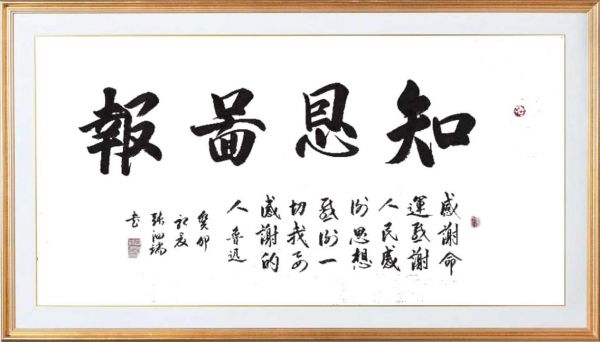 知恩圖報
感謝命
運感謝
人民感
謝思想
感謝一
切我要
感謝的
人 魯迅
癸卯
初夏
書